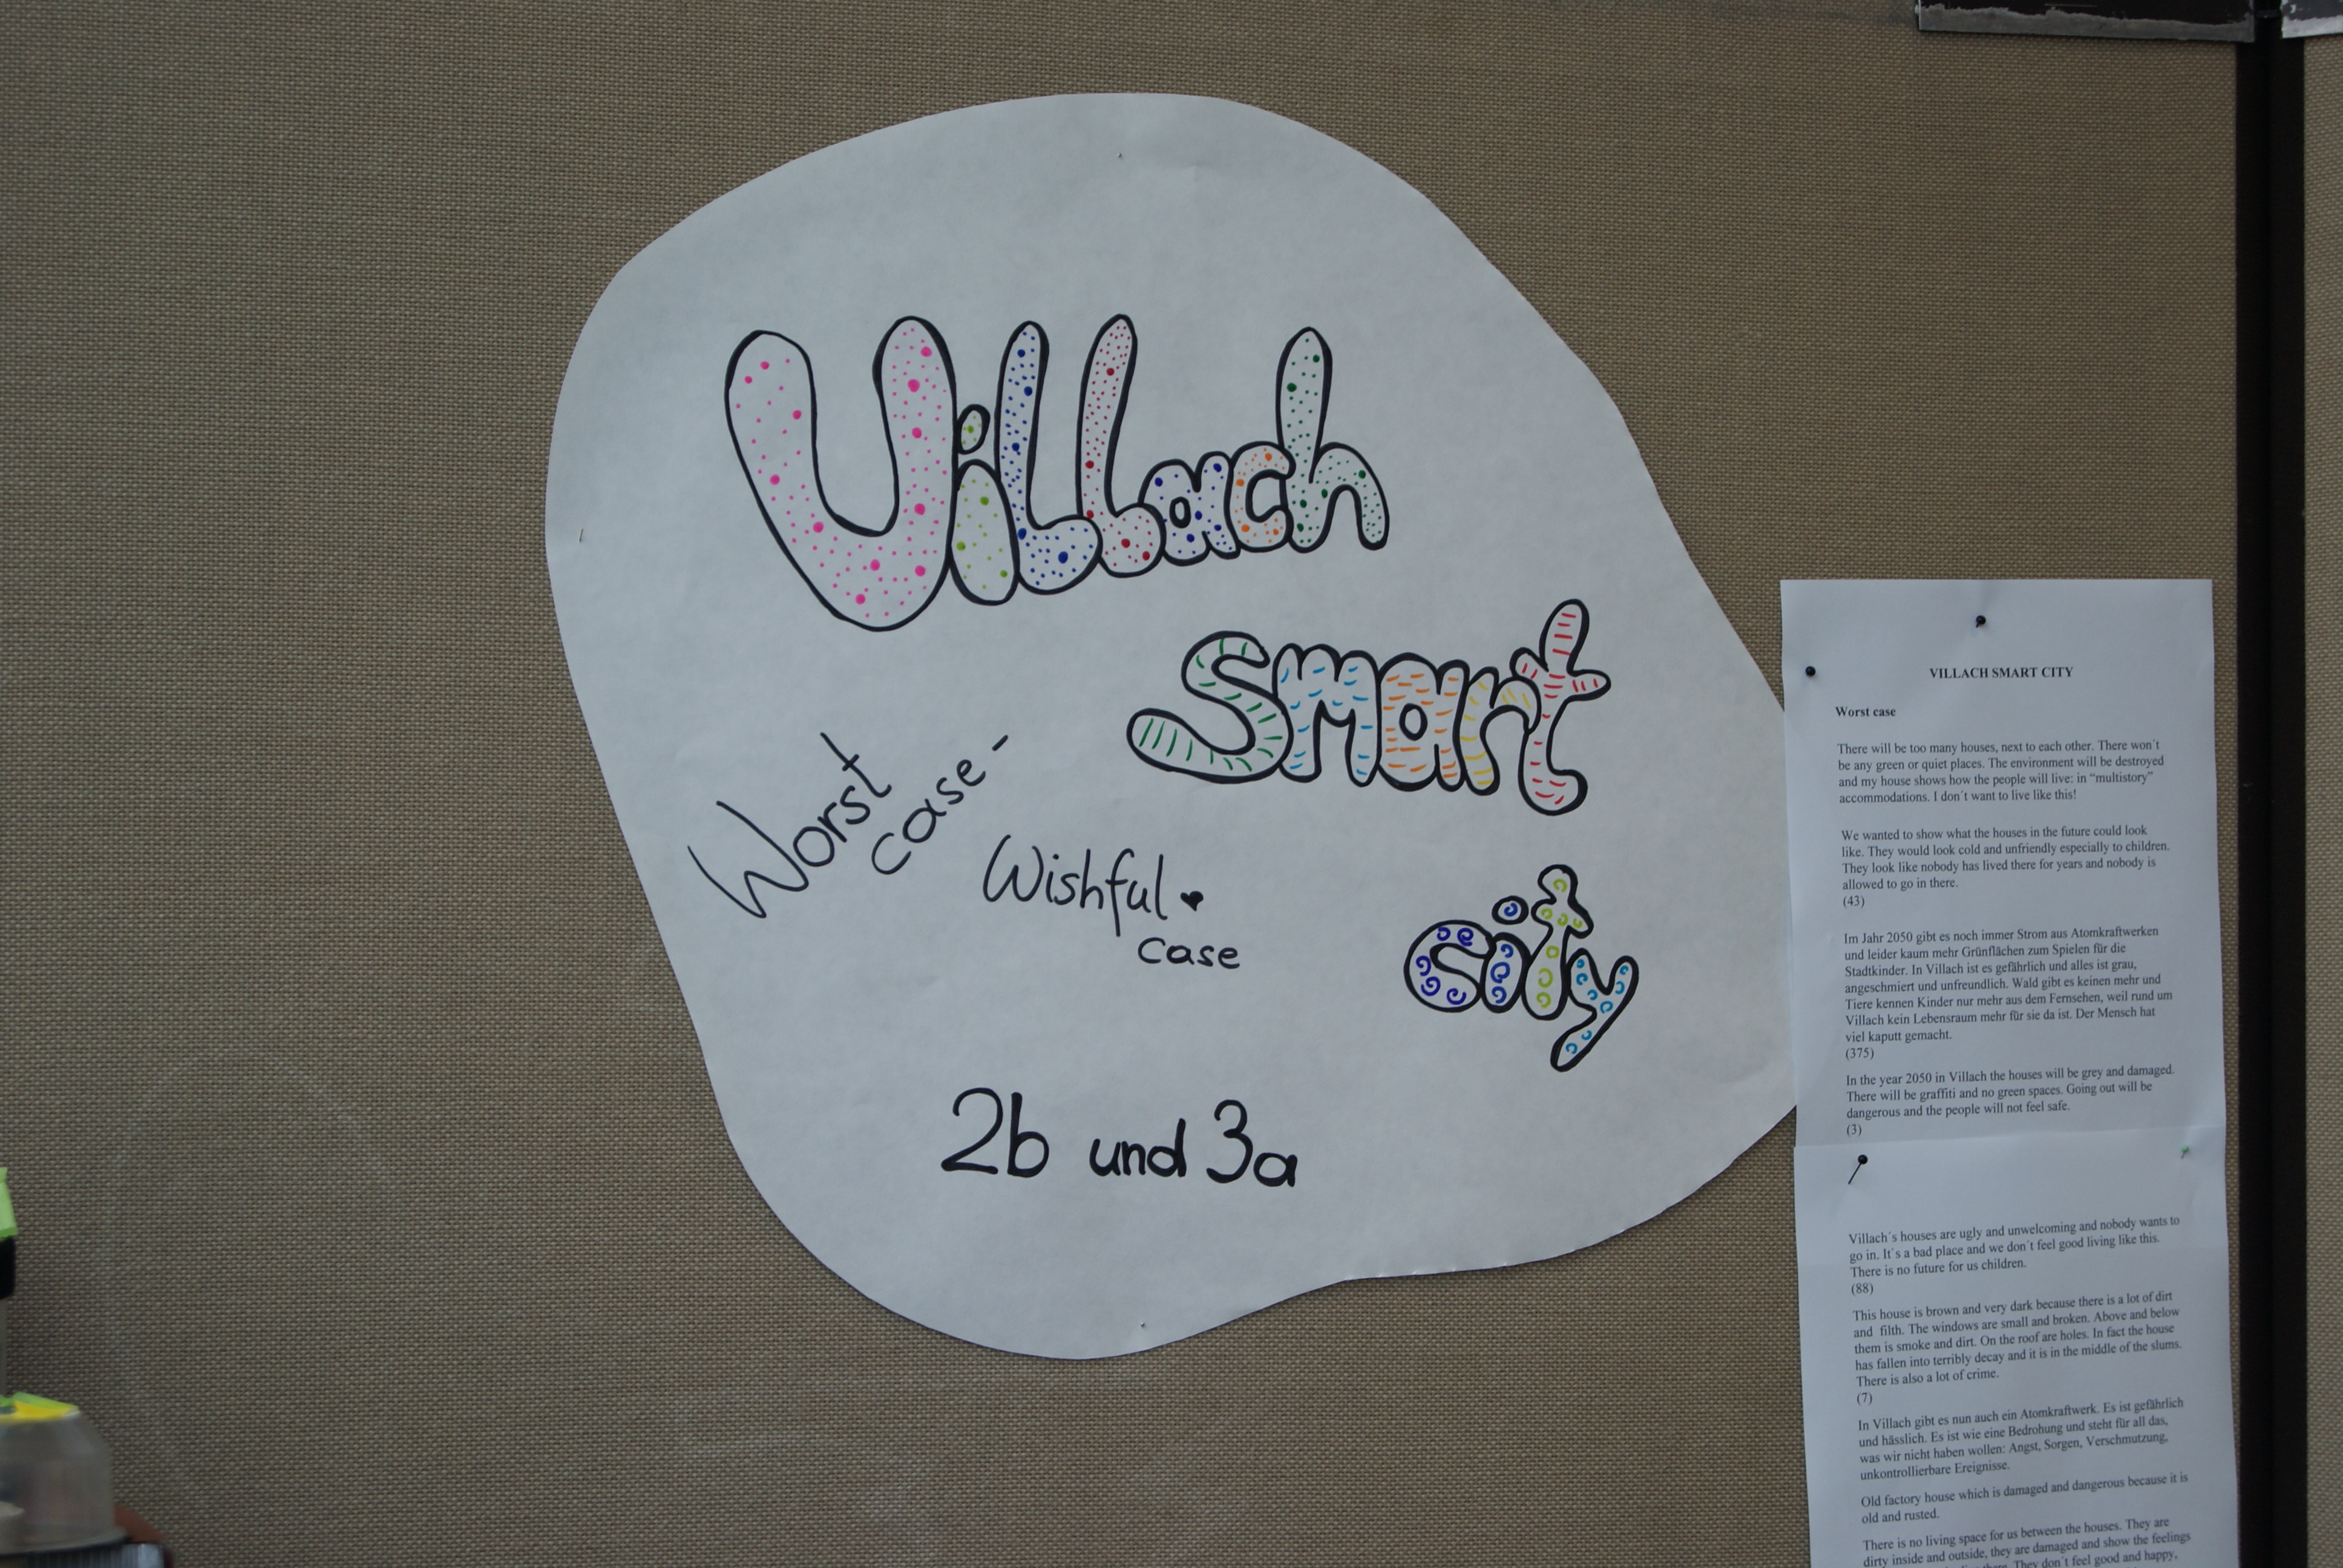 Villach
Smart
City
Worst
case-
Wishful
case
2b und 3a
VILLACH SMART CITY
Worst case
There will be too many houses, next to each other. There won´t
be any green or quiet places. The environment will be destroyed
and my house shows how the people will live: in “multistory”
accommodations. I don´t want to live like this!
We wanted to show what the houses in the future could look
like. They would look cold and unfriendly especially to children.
They look like nobody has lived there for years and nobody is
allowed to go in there.
(43)
Im Jahr 2050 gibt es noch immer Strom aus Atomkraftwerken
und leider kaum mehr Grünflächen zum Spielen für die
Stadtkinder. In Villach ist es gefährlich und alles ist grau,
angeschmiert und unfreundlich. Wald gibt es keinen mehr und
Tiere kennen Kinder nur mehr aus dem Fernsehen, weil rund um
Villach kein Lebensraum mehr für sie da ist. Der Mensch hat
viel kaputt gemacht.
(375)
In the year 2050 in Villach the houses will be grey and damaged.
There will be graffiti and no green spaces. Going out will be
dangerous and the people will not feel safe.
(3)
Villach´s houses are ugly and unwelcoming and nobody wants to
go in. It´s a bad place and we don´t feel good living like this.
There is no future for us children.
(88)
This house is brown and very dark because there is a lot of dirt
and filth. The windows are small and broken. Above and below
them is smoke and dirt. On the roof are holes. In fact the house
has fallen into terribly decay and it is in the middle of the slums.
There is also a lot of crime.
(7)
In Villach gibt es nun auch ein Atomkraftwerk. Es ist gefährlich
und hässlich. Es ist wie eine Bedrohung und steht für all das,
was wir nicht haben wollen: Angst, Sorgen, Verschmutzung,
unkontrollierbare Ereignisse.
Old factory house which is damaged and dangerous because it is
old and rusted.
There is no living space for us between the houses. They are
dirty inside and outside, they are damaged and show the feelings
They don´t feel good and happy,